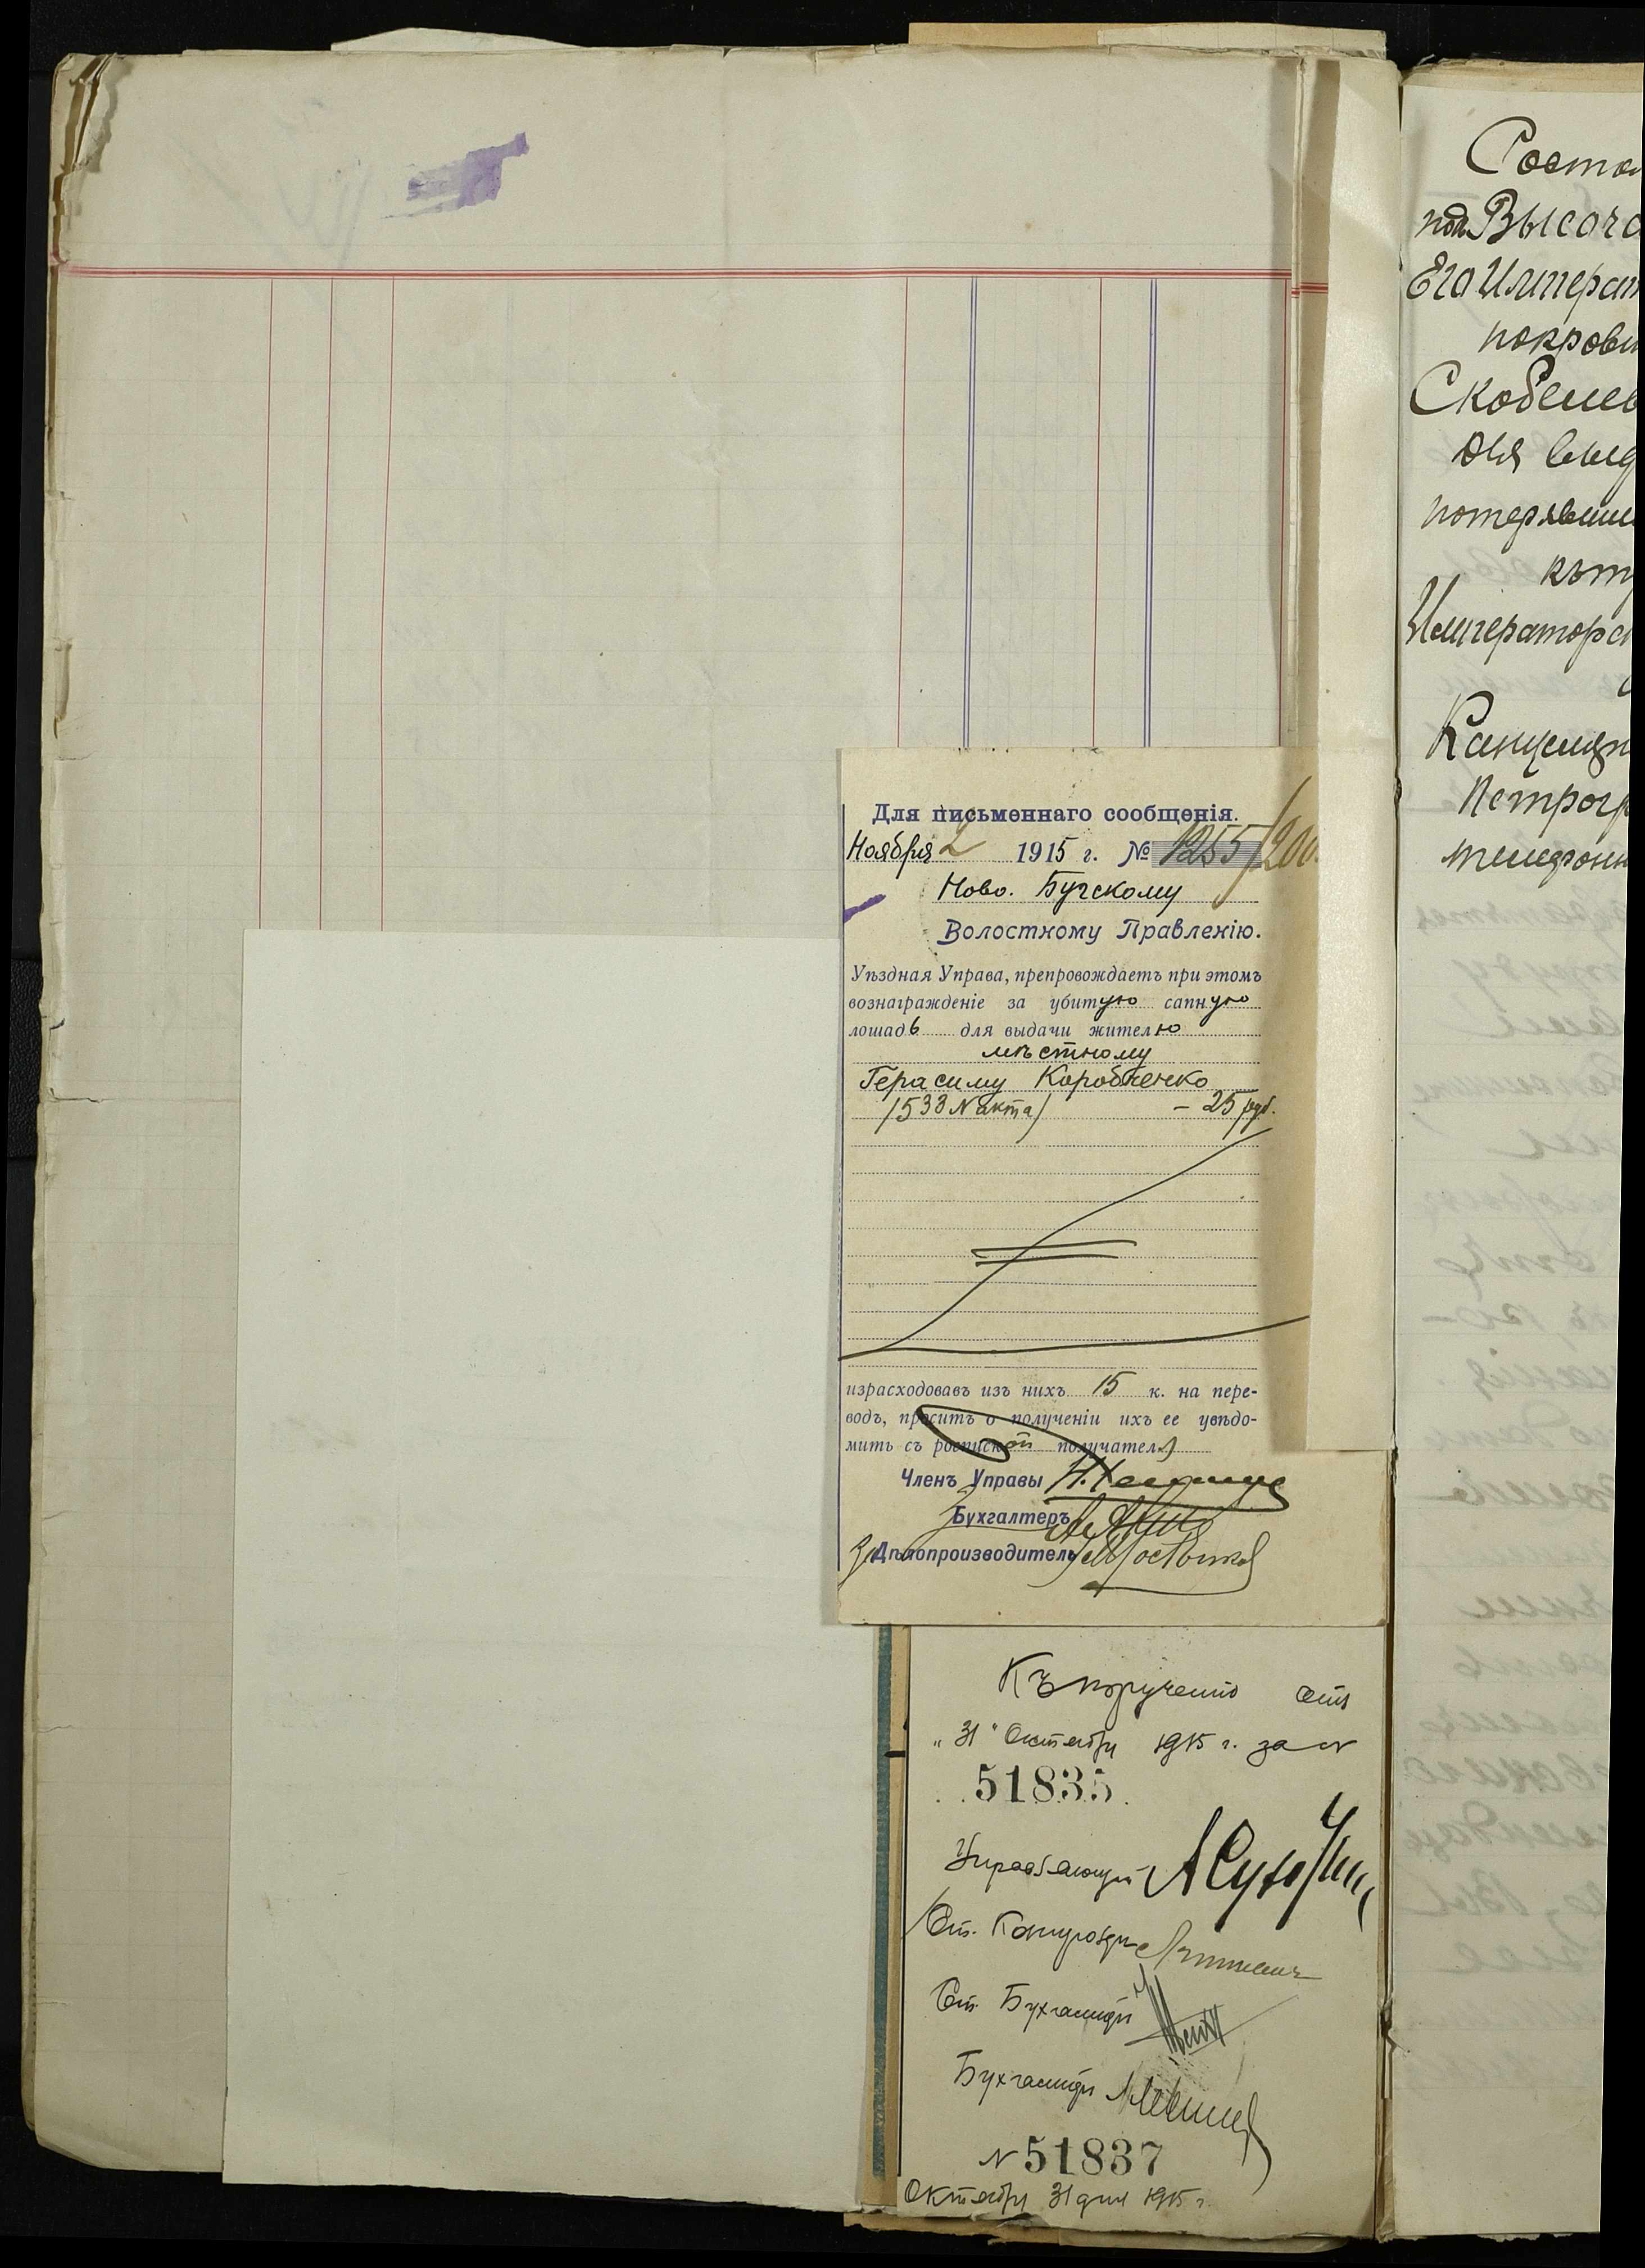 Для письменнаго сообщенія.
Ноября 2 1915 г. № 1255/200
Ново. Бугскому
Волостному Правленію.
Уѣздная Управа, препровождаетъ при этомъ
вознагражденіе за убитую сапную
лошадь для выдачи жителю
мѣстному
Герасиму Коробченко
/533 N акта/ – 25 руб.
израсходовавъ изъ нихъ 15 к. на пере-
водъ, проситъ о полученіи ихъ ее увѣдо-
мить съ роспиской получателя
Членъ Управы
Бухгалтеръ
Дѣлопроизводитель
Къ порученію отъ
"31" Октября 1915 г. за N
51835
Управляющій
Ст. Контролеръ
Ст. Бухгалтеръ
Бухгалтеръ
N 51837
Октября 31 дня 1915 г.
Состо
под Высоча
Его Императ
покрови
Скобелев
для выд
потерявши
къ
Императорс
Канцеляр
Петрогр
телефон